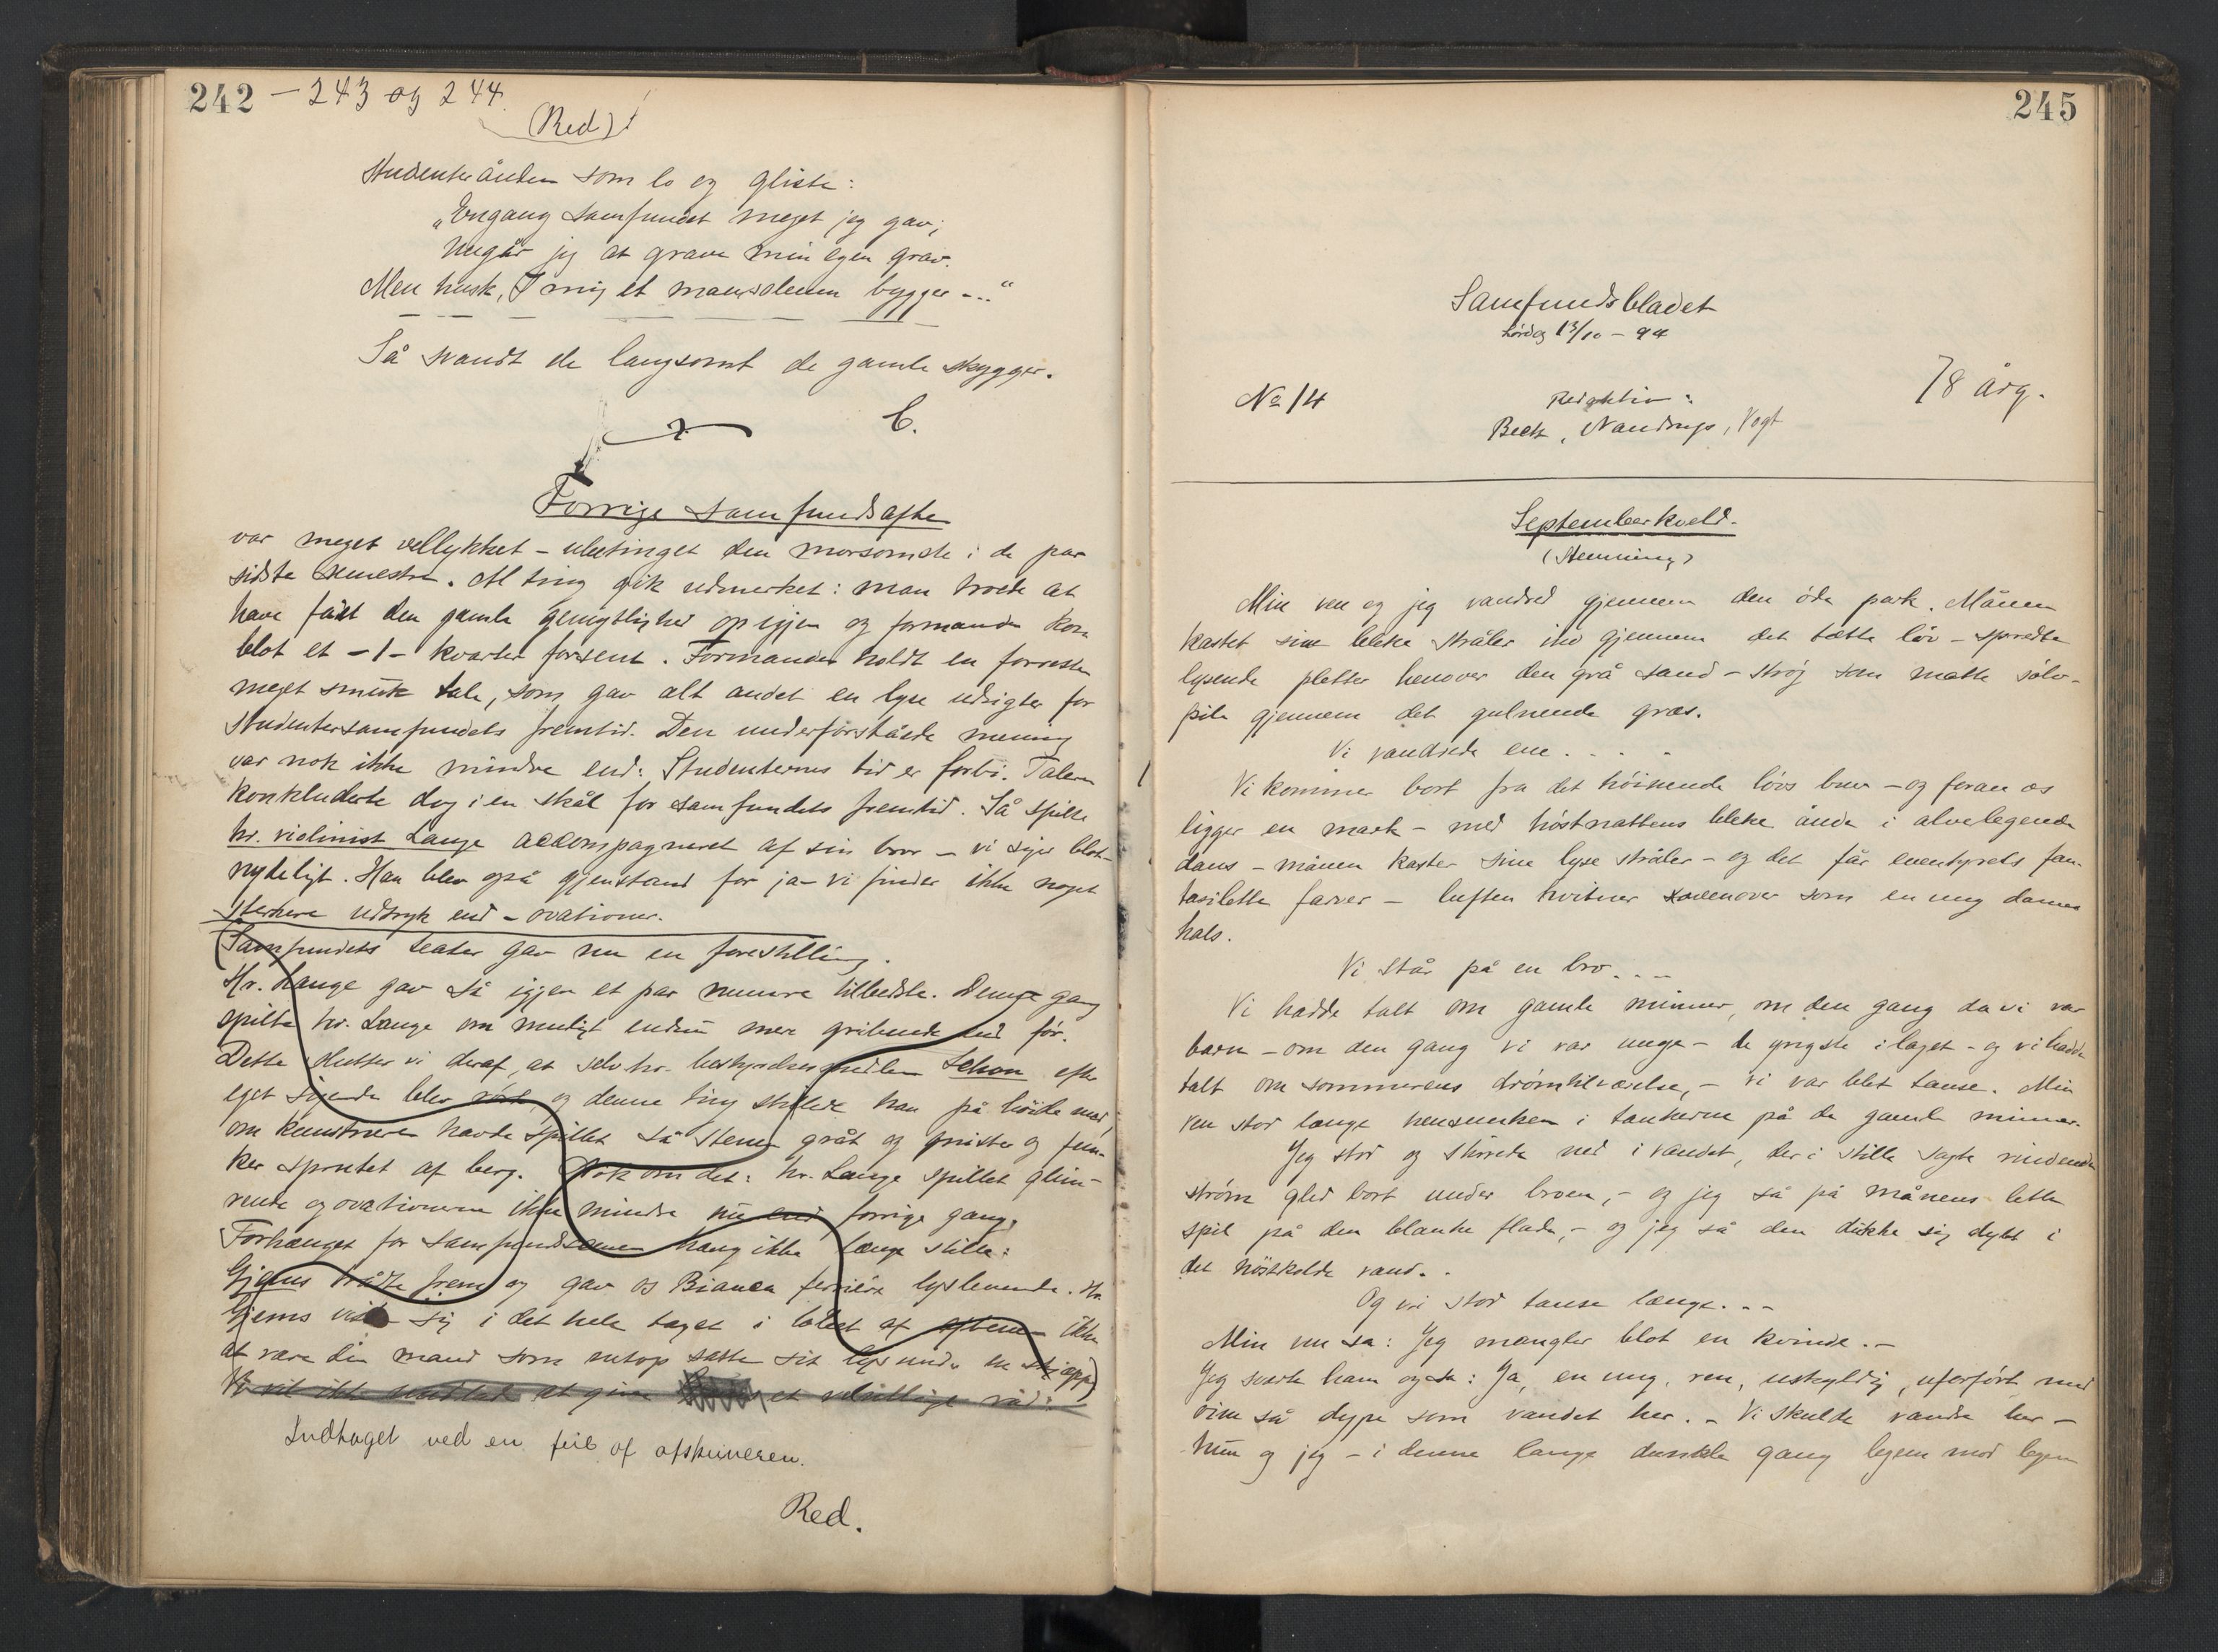 242 - 243 og 244.
(Red)!
Studenterånden som lo og gliste:
"Engang samfundet meget jeg gav;
nu går jeg at grave min egen grav.
Men husk, I mig et mausoleum bygger -.."
Så svandt de langsomt de gamle skygger.
C.
Forrige samfundsaften
var meget vellykket - ubetinget den morsomste i de par
sidste semestre. Al ting gik udmerket: man troede at
have fåt den gamle gemytlighed op igjen og formanden kom
blot et -1- kvarter forsent. Formanden holdt en forresten
meget smuk tale, som gav alt andet en lyse udsigter for
studentersamfundets fremtid. Den underforståede mening
var nok ikke mindre end: Studenternes tid er forbi. Taleren
konkluderte dog i en skål for samfundets fremtid. Så spilte
hr. violinist Lange accompagneret af sin bror - vi siger blot -
nydeligt. Han blev også gjenstand for ja - vi finder ikke noget
sterkere udtryk end - ovationer.
(Samfundets teater gav nu en forestilling.
Hr. Lange gav så igjen et par numre tilbedste. Denne gang
spilte hr. Lange om muligt endnu mer gribende end før.
Dette slutter vi deraf, at selv hr. bestyrelsesmedlem Schou efter
eget sigende blev rørt og denne ting
om kunstneren havde spillet så stener gråt og gnister og fun-
ker sprutet af berg. Nok om det: hr. Lange spillet glim-
rende og ovationerne ikke mindre nu end forrige gang.
Forhænget for samfundsscenen hang ikke længe stille:
Gjems trådte frem og gav os Bianca lyslevende. Hr.
Gjems viste sig i det hele taget i løbet af aftenen ikke
at være den mand som netop satte sit lys under en skjæppe)
Vi vil ikke undlade at give et velvillige råd:
Indtaget ved en feil af afskriveren.
Red.
245
Samfundsbladet
Lørdag 13/10 - 94
No 14
Redaktion:
78 årg.
Beck, Nandrup, Vogt
Septemberkveld.
(Stemning)
Min ven og jeg vandred gjennem den øde park. Månen
kastet sine bleke stråler ind gjennem det tætte løv - spredte
lysende pletter henover den grå sand - strøg som matte sølv-
pile gjennem det gulnende græs.
Vi vandrede ene....
Vi kommer bort fra det høinende løvs buer - og foran os
ligger en mark - med høstnattens bleke ånde i alvelegende
dans - månen kaster sine lyse stråler - og det får eventyrets fan-
tasilette farver - luften hvitner henover som en ung dames
hals.
Vi står på en bro...-
Vi hadde talt om gamle minner, om den gang da vi var
barn - om den gang vi var unge - de yngste i laget - og vi hadde
talt om sommerens drømtilværelse, - vi var blet tause. Min
ven stod længe hensunken i tankerne på de gamle minner.
Jeg stod og stirrede ned i vandet, der i stille sagte rindende
strøm gled bort under broen, - og jeg så på månens lette
spil på den blanke flade, - og jeg så den dukke sig dybt i
det høstkolde vand..
Og vi stod tause længe...-
Min ven sa: Jeg mangler blot en kvinde.-
Jeg svarte ham og sa: Ja, en ung, ren, uskyldig, uforført med
øine så dype som vandet her. - Vi skulde vandre her -
hun og jeg - i denne lange dunkle gang legem mod legem